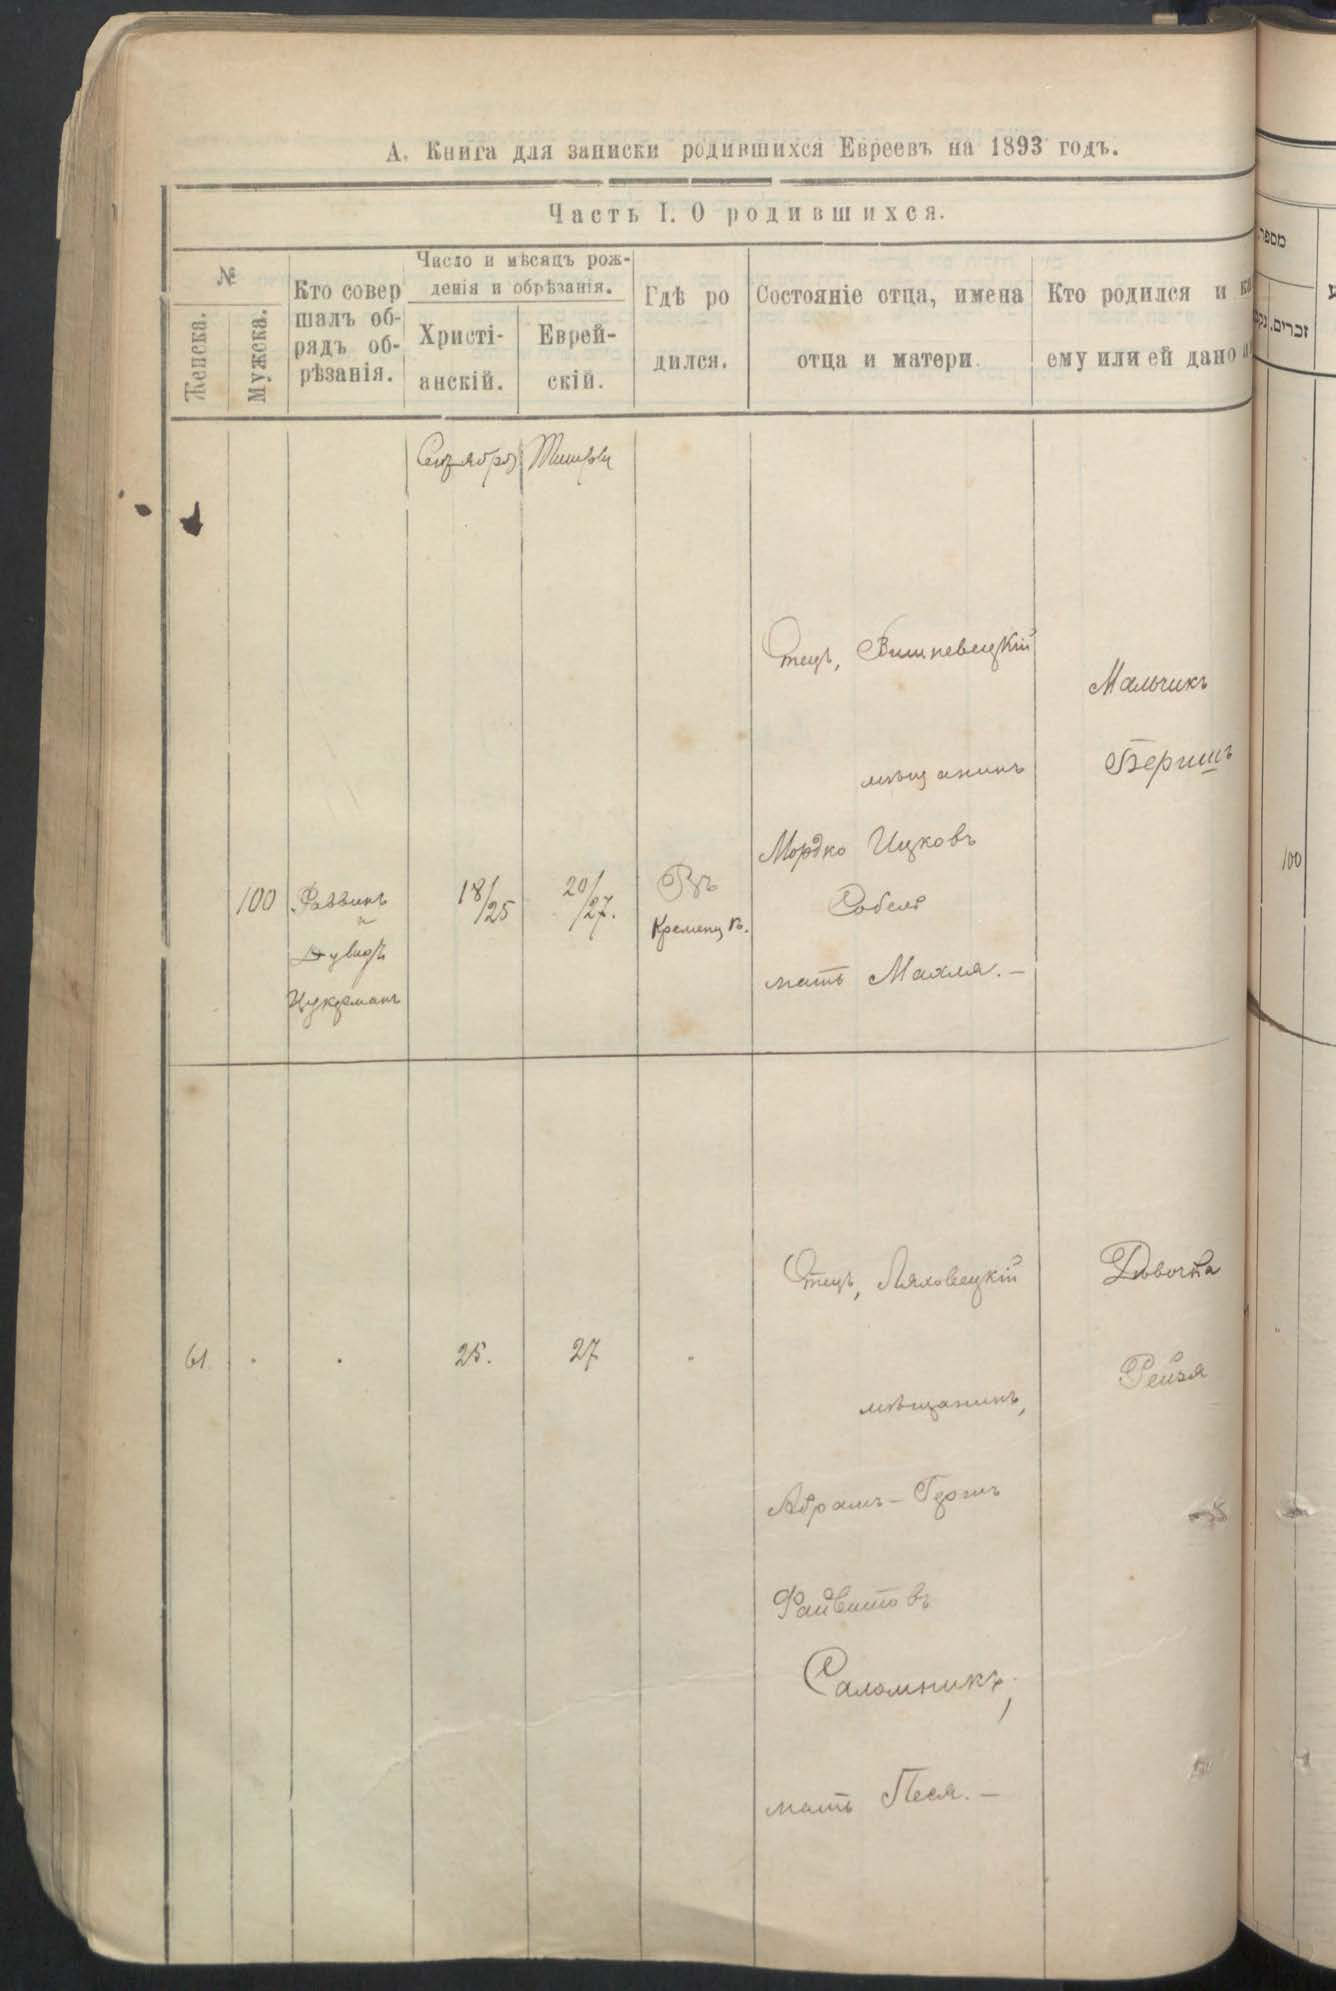 А. Книга для записки родившихся Евреевъ на 1893 годъ.
Часть I. О родившихся.
№
Женска.
Мужска.
Кто совер
шалъ об-
рядъ об-
рѣзанія.
Число и мѣсяцъ рож-
денія и обрѣзанія.
Христі-
анскій.
Еврей-
скій.
Гдѣ ро
дился.
Состояніе отца, имена
отца и матери.
Кто родился и
ему или ей дано
מספר
זכרים.
Сентябрь
Тишри
100
Раввинъ
и
Дувидъ
18/25
20/27.
Въ
Кременцѣ.
Отецъ, Вишневецкій
мѣщанинъ
Мордко Ицковъ
Собель
мать Махля.—
Мальчикъ
Беришъ
100
61
25.
27
"
Отецъ, Ляховецкій
мѣщанинъ,
Абрамъ-Гершъ
Файвишовъ
Саломникъ,
мать Песя.—
Дѣвочка
Рейзя